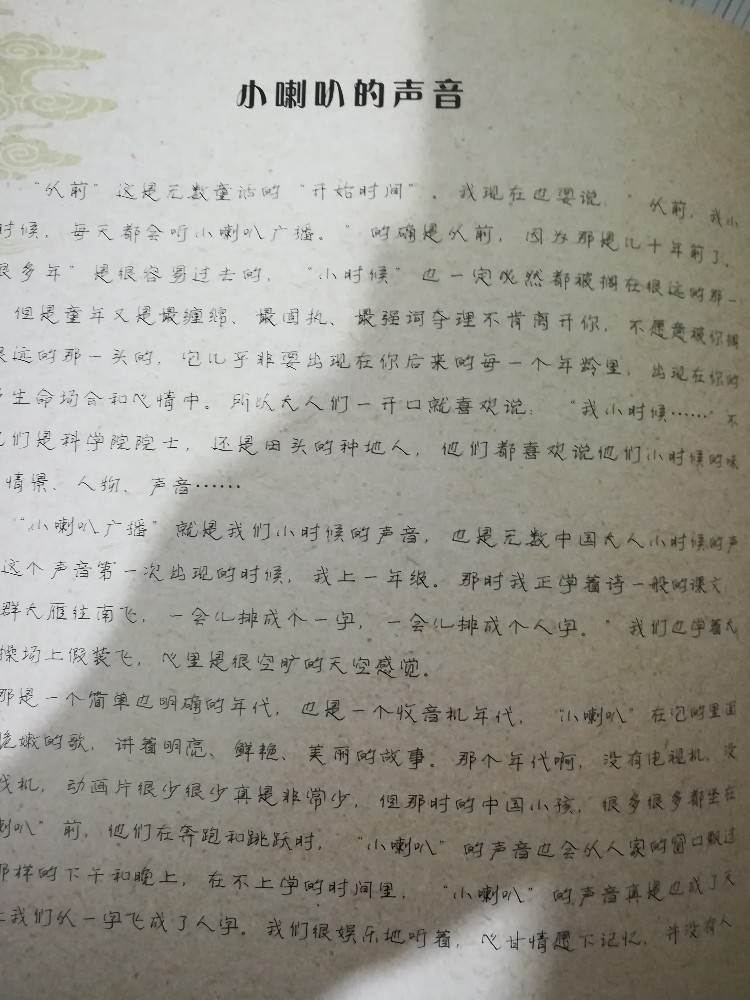 小喇叭的声音
“从前”这是无数童话的“开始时间”。我现在也要说，“从前，我小
时候，每天都会听小喇叭广播。”的确是从前，因为那是几十年前了、
很多年”是很容易过去的，“小时候”也一定必然都被搁在很远的那一
但是童年又是最缠绵、最固执、最强词夺理不肯离开你，不愿意被你搁
很远的那一头的，它几乎非要出现在你后来的每一个年龄里，出现在你的
生命场合和心情中。所以大人们一开口就喜欢说：“我小时候……”不
他们是科学院院士，还是田头的种地人，他们都喜欢说他们小时候的味
情景、人物、声音……
“小喇叭广播”就是我们小时候的声音，也是无数中国大人小时候的声
这个声音第一次出现的时候，我上一年级。那时我正学着诗一般的课文
群大雁往南飞，一会儿排成个一字，一会儿排成个人字。”我们也学着大
操场上假装飞，心里是很空旷的天空感觉。
那是一个简单也明确的年代，也是一个收音机年代，“小喇叭”在它的里面
嫩的歌，讲着明亮、鲜艳、美丽的故事。那个年代啊，没有电视机，没
戏机，动画片很少很少真是非常少，但那时的中国小孩，很多很多都坐在
喇叭”前，他们在奔跑和跳跃时，“小喇叭”的声音也会从人家的窗口飘过
那样的下午和晚上，在不上学的时间里，“小喇叭”的声音真是也成了天
让我们从一字飞成了人字。我们很娱乐地听着，心甘情愿下记忆，并没有人